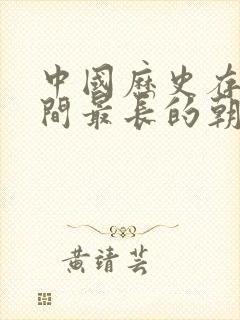 中國歷史存
間最長的朝
黃靖芸